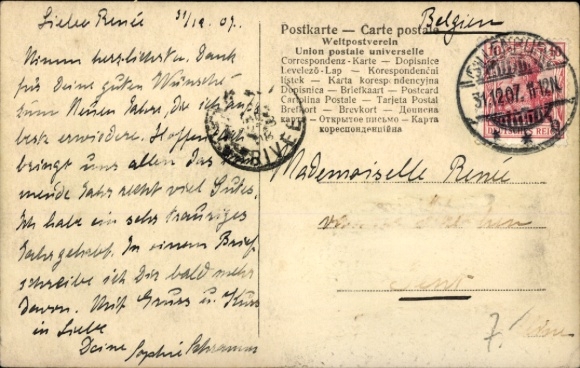 Liebe Renée 31/12.07.
Nimm herzlichsten Dank
für Deine guten Wünsche
zum Neuen Jahre, die ich aufs
beste erwiedere. Hoffentl.
bringt uns allen das
mende Jahr recht viel Gutes.
Ich habe ein sehr trauriges
Jahr gehabt. In einem Brief
schreibe ich Dir bald mehr
davon. Mit Gruss u. Kuss
in Liebe
Deine Sophie
Belgien
Postkarte — Carte postale
Weltpostverein
Union postale universelle
Correspondenz-Karte — Dopisnice
Levelező-Lap — Korespondenční
lístek — Karta korespondencyjna
Dopisnica — Briefkaart — Postcard
Cartolina Postale — Tarjeta Postal
Brefkort — Brevkort — Дописна
карта — Открытое письмо — Карта
кореспонденційна
31.12.07. 11-12N
DEUTSCHES REICH
ARRIVÉE
Mademoiselle Renée
Gent
7.